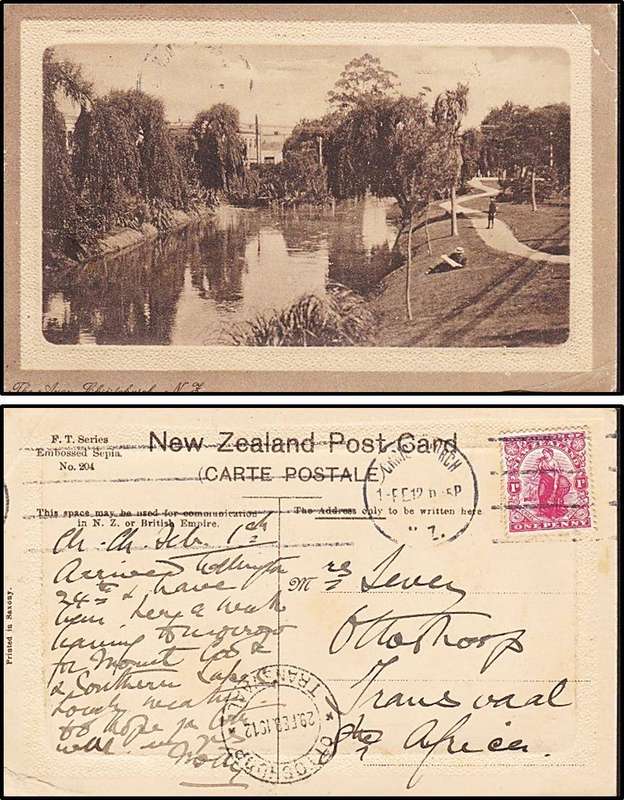 The Avon, Christchurch, N.Z.
F. T. Series
Embossed Sepia.
No. 204
New Zealand Post Card
(CARTE POSTALE)
This space may be used for communication
in N. Z. or British Empire.
The Address only to be written here
CHRISTCHURCH
1-FE 12 5P
N.Z.
NEW ZEALAND
1D
1D
ONE PENNY
Printed in Saxony.
Ch. Ch. Feb. 1st
Arrived Wellington
24th & have
been here a week
leaving tomorrow
for Mount Cook
& Southern Lakes
Lovely weather
hope you are
well
Mrs Levey
Ottoshoop
Transvaal
Sth Africa.
OTTOSHOOP
TRANSVAAL
29.FEB.1912